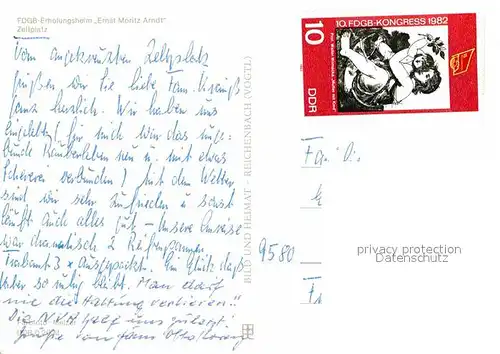 FDGB-Erholungsheim „Ernst Moritz Arndt"
Zeltplatz
Vom angekreuzten Zeltplatz
grüßen wir Sie liebe Fam.
ganz herzlich. Wir haben uns
eingelebt (für mich war das unge-
bunde Räuberleben neu u. mit etwas
Scheveren verbunden) mit dem Wetter
sind wir sehr zufrieden u sonst
läuft auch alles gut – Unsere Anreise
war dramatisch 2 Reifenpannen
Trabant 3 x Ausgepackt. Ein Glück dass
so ruhig bleibt. Man darf
nie die Haltung verlieren!!
Die NVA half uns zuletzt!
Grüße von Fam. Otto
BILD UND HEIMAT · REICHENBACH (VOGTL)
10. FDGB-KONGRESS 1982
10
DDR
9580
privacy protection
Datenschutz